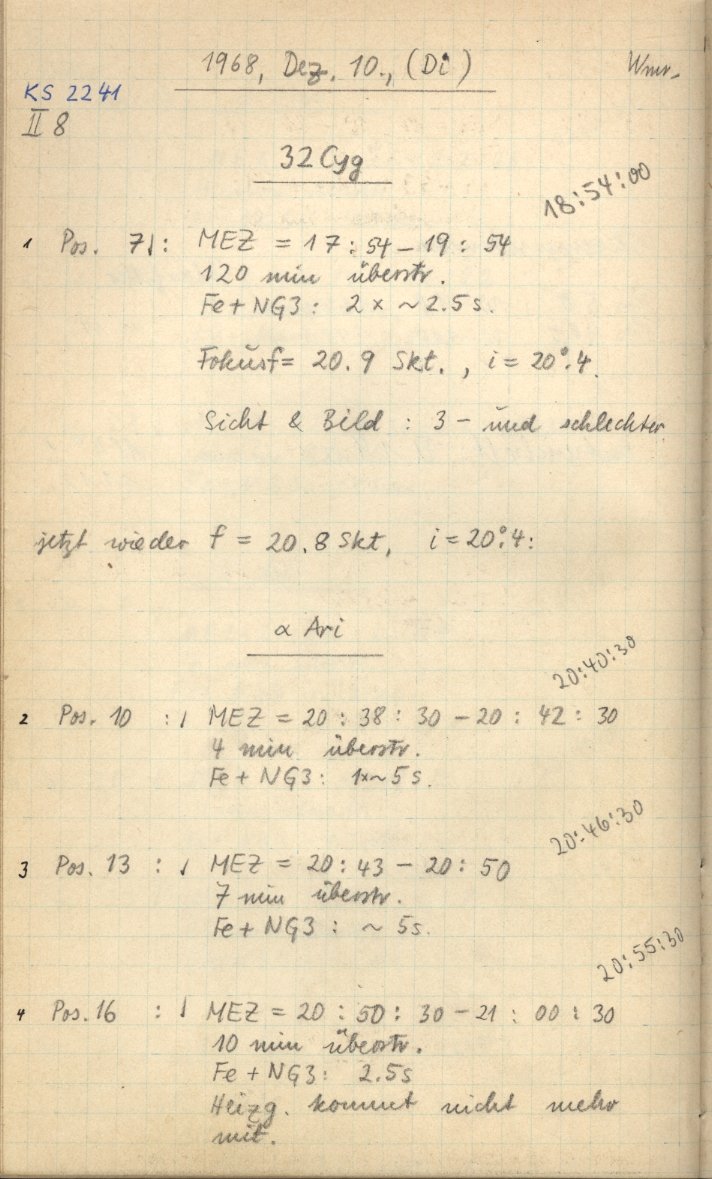 1968, Dez. 10., (Di) Wmr.
KS 2241
II 8
32 Cyg
18:54:00
1 Pos. 7↓: MEZ = 17:54 – 19:54
120 min überstr.
Fe + NG3: 2 x ~ 2.5 s.
Fokus f = 20.9 Skt., i = 20°.4.
Sicht & Bild : 3 – und schlechter
jetzt wieder f = 20.8 Skt, i = 20°.4:
α Ari
20:40:30
2 Pos. 10 : ↓ MEZ = 20:38:30 – 20:42:30
4 min überstr.
Fe + NG3: 1x~ 5 s.
20:46:30
3 Pos. 13 : ↓ MEZ = 20:43 – 20:50
7 min überstr.
Fe + NG3 : ~ 5s.
20:55:30
4 Pos. 16 : ↓ MEZ = 20:50:30 – 21:00:30
10 min überstr.
Fe + NG3: 2.5s
Heizg. kommt nicht mehr
mit.